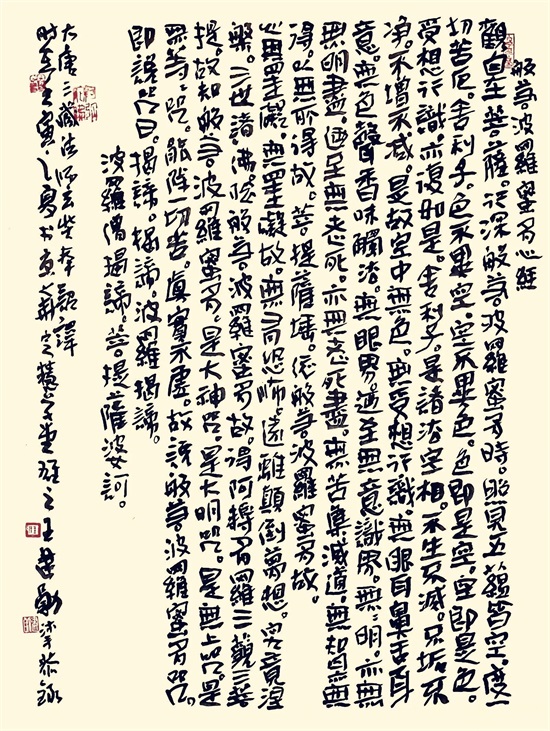 般若波羅蜜多心經
觀自在菩薩。行深般若波羅蜜多時。照見五蘊皆空。度一
切苦厄。舍利子。色不異空。空不異色。色即是空。空即是色。
受想行識亦復如是。舍利子。是諸法空相。不生不滅。不垢不
淨。不增不減。是故空中無色。無受想行識。無眼耳鼻舌身
意。無色聲香味觸法。無眼界。迺至無意識界。無無明。亦無
無明盡。迺至無老死。亦無老死盡。無苦集滅道。無智亦無
得。以無所得故。菩提薩埵。依般若波羅蜜多故。
心無罣礙。無罣礙故。無有恐怖。遠離顛倒夢想。究竟涅
槃。三世諸佛。依般若波羅蜜多故。得阿耨多羅三藐三菩
提。故知般若波羅蜜多。是大神咒。是大明咒。是無上咒。是
無等等咒。能除一切苦。真實不虛。故說般若波羅蜜多咒。
即說咒曰。揭諦。揭諦。波羅揭諦。
波羅僧揭諦。菩提薩婆訶。
大唐三藏法師玄奘奉詔譯
時在壬寅之夏书於 王建勛沐手恭錄